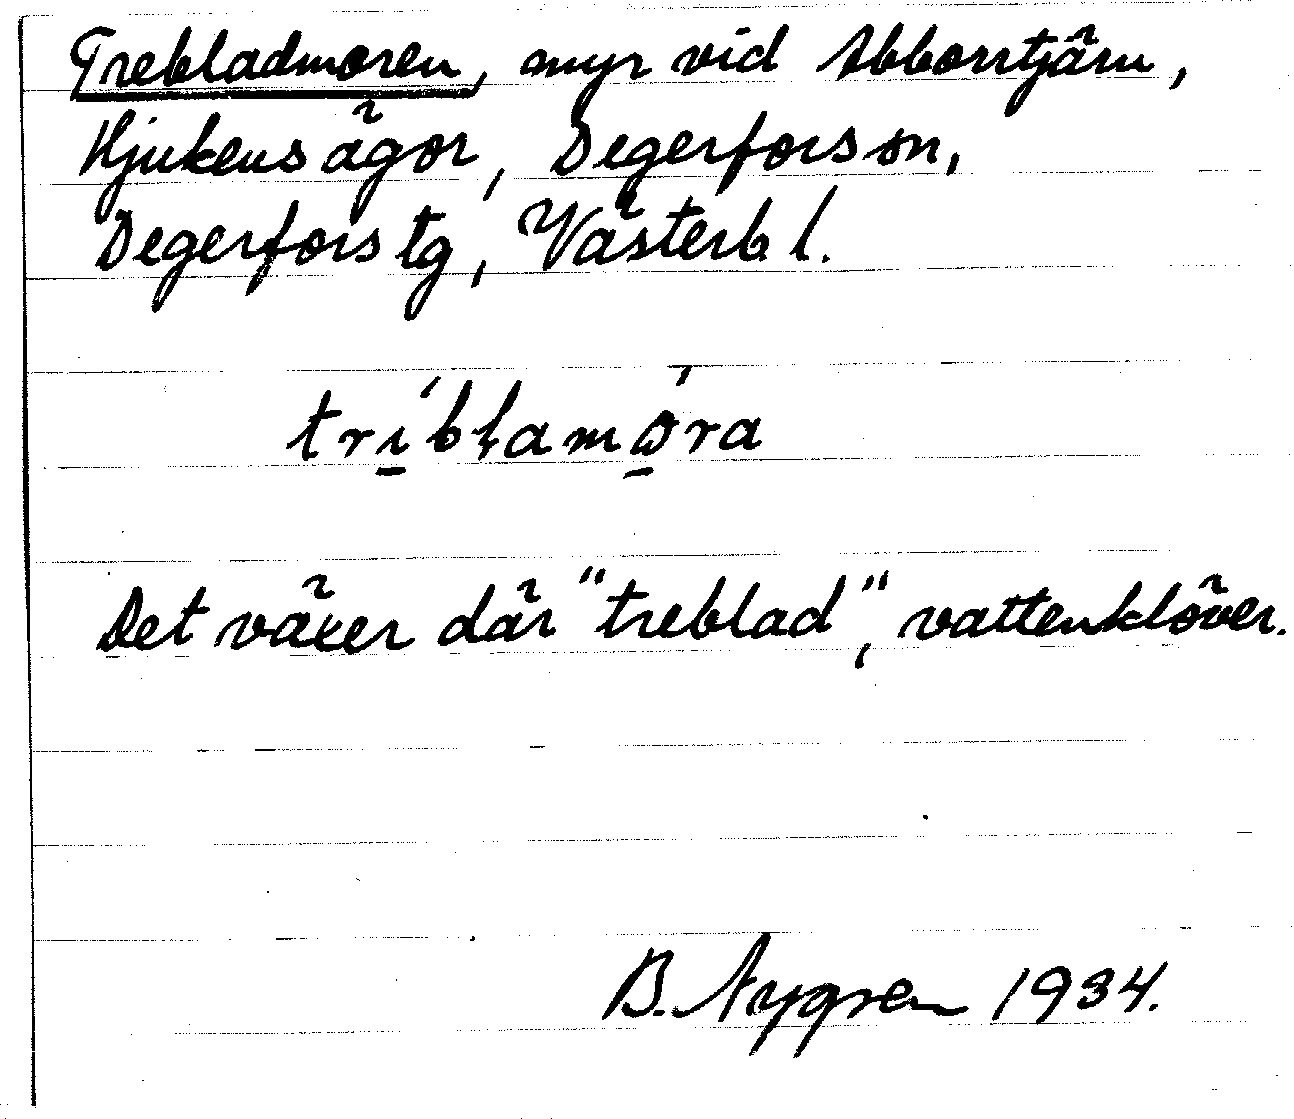 Trebladmoren, myr vid Abborrtjärn,
Hjukens ägor, Degerfors sn,
Degerfors tg, Västerb l.
tri̱´bɫamo̱´ra
Det växer där "treblad", vattenklöver.
B. Nygren 1934.